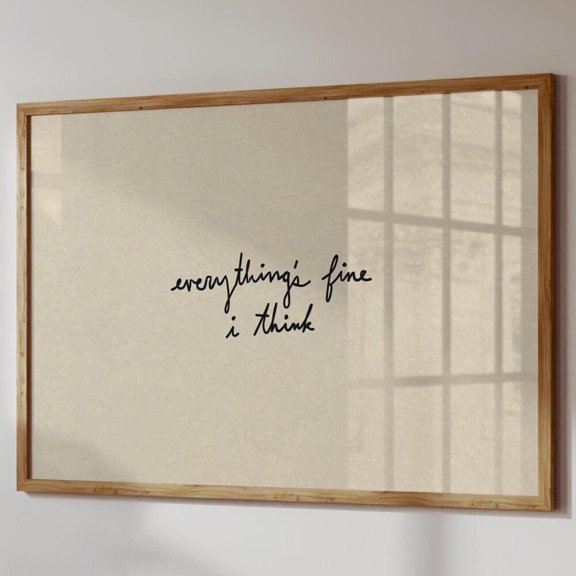 everything's fine
i think